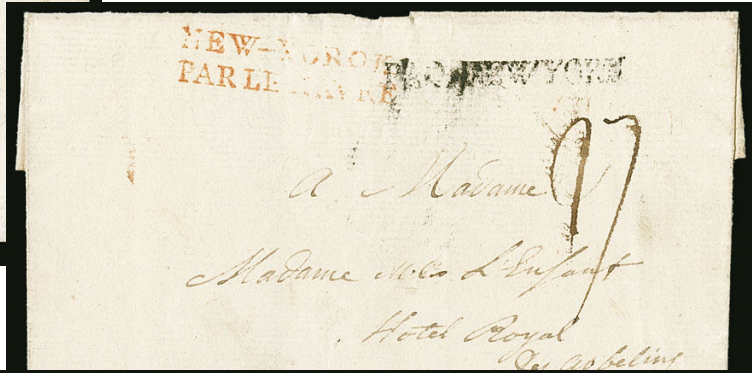 NEW-YORCK
PAR LE HAVRE
PAQ. NEW YORK
A Madame
Madame L'Enfant
Hotel Royal
des gobelins